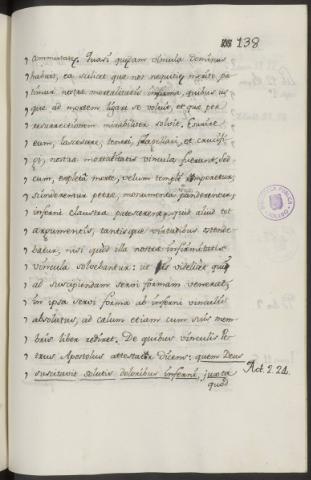 138
" commentary. Quasi quædam vincula Dominus
" habuit, ea scilicet quæ nos nequitiæ merito, pa
" timur nostræ mortalitatis infirma, quibus us
" que ad mortem ligari se voluit, et quæ per
" resurrectionem mirabiliter solvit. Esurire
" eum, lassescere, teneri, flagellari, et crucifi
" gi, nostræ mortalitatis vincula fuerunt. Sed
" cum, expleta morte, velum templi
" scinderentur petræ, monumenta panderentur,
" inferni claustra patescerent, quid aliud tot
" argumentis, tantisque virtutibus ostende
" batur, nisi quod illa nostræ infirmitatis
" vincula solvebantur: ut is videlicet qui
" ad suscipiendam servi formam venerat,
" in ipsa servi forma ab inferni vinculis
" absolutus, ad cælum etiam cum suis mem
" bris liber rediret. De quibus vinculis Pe
" trus Apostolus attestatur dicens: quem Deus
" suscitavit solutis doloribus inferni, juxta
Act. 2.24.
quod